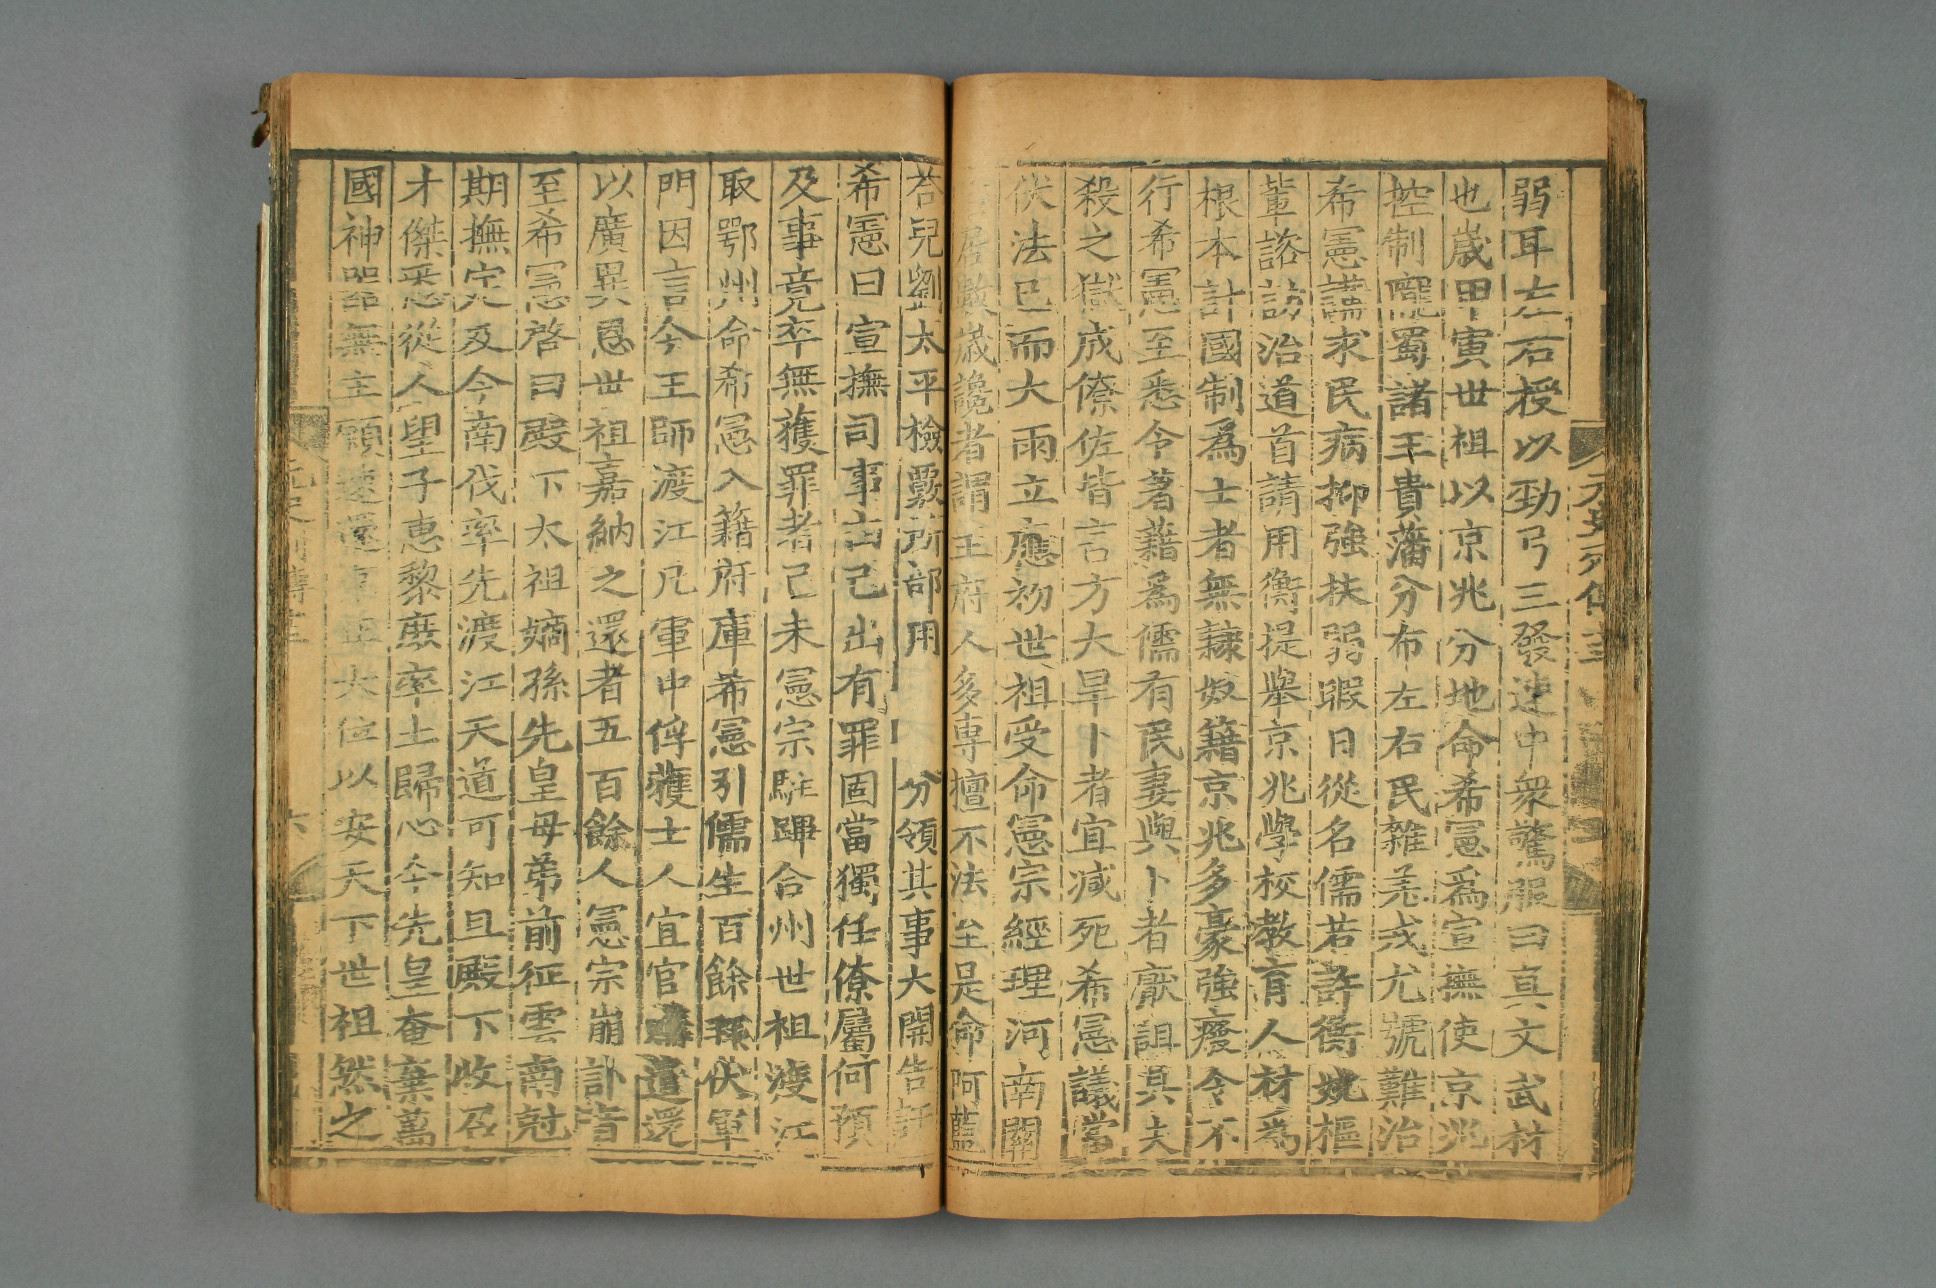 元史列傳十三
弱耳左右授以勁弓三發連中衆驚服曰真文武材
也歲甲寅世祖以京兆分地命希憲爲宣撫使京兆
控制隴蜀諸王貴藩分布左右民雜羌戎尤號難治
希憲講求民病抑強扶弱暇日從名儒若許衡姚樞
輩諮訪治道首請用衡提舉京兆學校教育人材爲
根本計國制爲士者無隷奴籍京兆多豪強廢令不
行希憲至悉令著籍爲儒有民妻與卜者厭詛其夫
殺之獄成僚佐皆言方大旱卜者宜减死希憲議當
伏法已而大雨立應初世祖受命憲宗經理河南關
居數歲讒者謂王府人多専擅不法至是命阿藍
荅兒劉太平檢覈所部用 分領其事大開告訐
希憲曰宣撫司事由己出有罪固當獨任僚屬何預
及事竟卒無獲罪者己未憲宗駐蹕合州世祖渡江
取鄂州命希憲入籍府庫希憲引儒生百餘拜伏軍
門因言今王師渡江凡軍中俘獲士人宜官購遣還
以廣異恩世祖嘉納之還者五百餘人憲宗崩訃音
至希憲啓曰殿下太祖嫡孫先皇母弟前征雲南尅
期撫定及今南伐率先渡江天道可知且殿下收召
才傑悉從人望子惠黎庶率土歸心今先皇奄棄萬
國神器無主願速還京正大位以安天下世祖然之
元史列傳十三 六